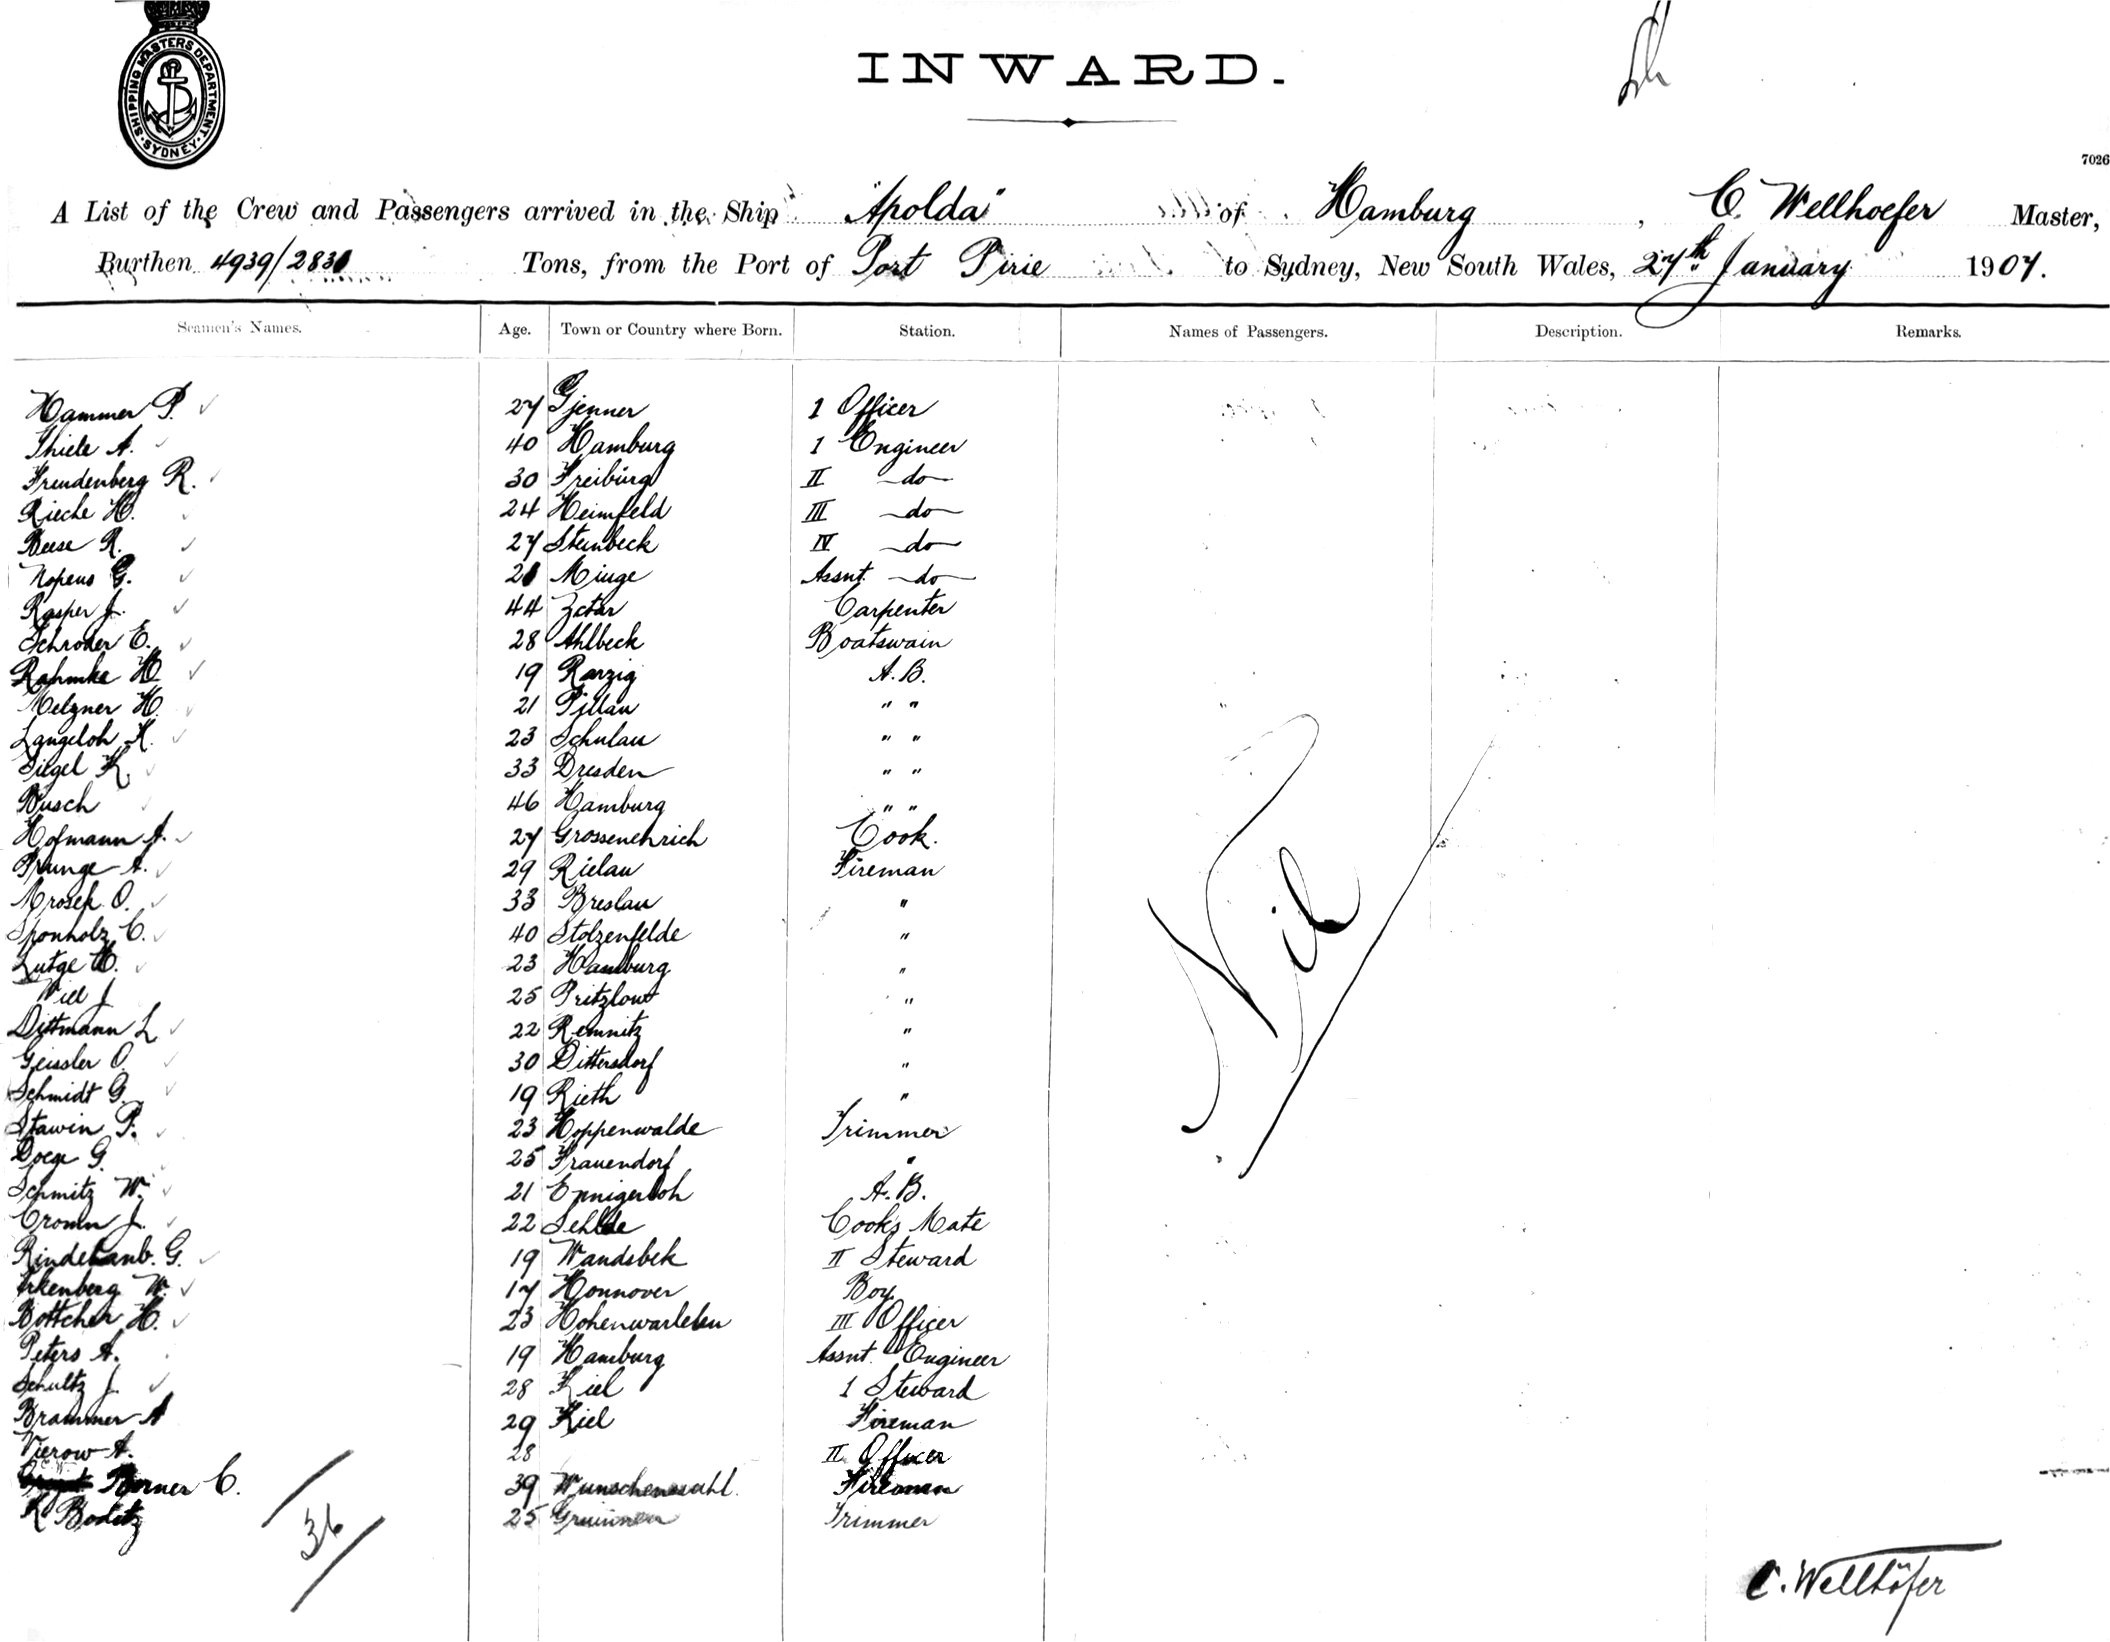 SHIPPING MASTERS DEPARTMENT
SYDNEY
INWARD.
7026
A List of the Crew and Passengers arrived in the Ship "Apolda" of Hamburg, C. Wellhoefer Master,
Burthen 4939/2831 Tons, from the Port of Port Pirie to Sydney, New South Wales, 27th January 1907.
Seamen's Names. Age. Town or Country where Born. Station. Names of Passengers. Description. Remarks.
Hammer P. 27 Gjenner 1 Officer
Thiele A. 40 Hamburg 1 Engineer
Freudenberg R. 30 Freiburg II -do-
Rieche H. 24 Heimfeld III -do-
Beese R. 27 Steinbeck IV -do-
Nopens G. 21 Minge Assnt -do-
Rasper J. 44 Carpenter
Schroder E. 28 Ahlbeck Boatswain
Rahmke H 19 Rarzig A.B.
Melzner H. 21 Pillau " "
Langeloh K. 23 Schulau " "
Siegel K. 33 Dresden " "
Busch 46 Hamburg " "
Hofmann A. 27 Grossenehrich Cook.
Prunge A. 29 Rielau Fireman
Mrosek O. 33 Breslau "
Sponholz C. 40 Stolzenfelde "
Lutge H. 23 Hamburg "
Wiel J 25 Pritzlow "
Dittmann L 22 Remnitz "
Geissler O. 30 Dittersdorf "
Schmidt G. 19 Rieth "
Stawin P. 23 Hoppenwalde Trimmer
Doege G. 25 Frauendorf "
Schmitz W. 21 Ennigerloh A.B.
Cronin J. 22 Sehlde Cooks Mate
G. 19 Wandsbek II Steward
Erkenberg W. 17 Honnover Boy
Bottcher H. 23 Hohenwarleben III Officer
Peters A. 19 Hamburg Assnt. Engineer
Schultz J. 28 Kiel 1 Steward
Brammer A 29 Kiel Fireman
Vierow A. 28 II Officer
Borner C. 39 Fireman
K Boditz 25 Trimmer
Nil
36
C. Wellhöfer